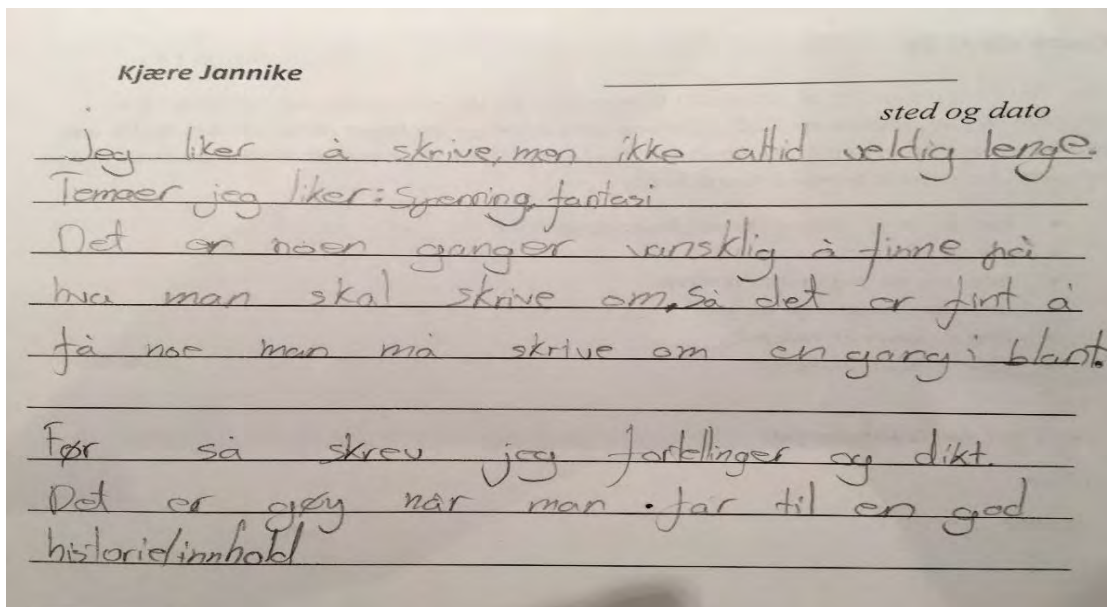 Kjære Jannike
sted og dato
Jeg liker å skrive, men ikke alltid veldig lenge.
Temaer jeg liker: Spenning, fantasi
Det er noen ganger vansklig å finne på
hva man skal skrive om, Så det er fint å
få noe man må skrive om en gang i blant.
Før så skrev jeg fortellinger og dikt.
Det er gøy når man får til en god
historie/innhold